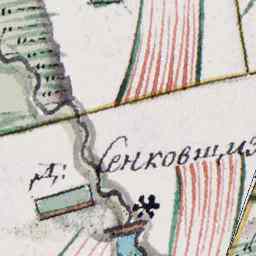 Д:
Сенковщиз